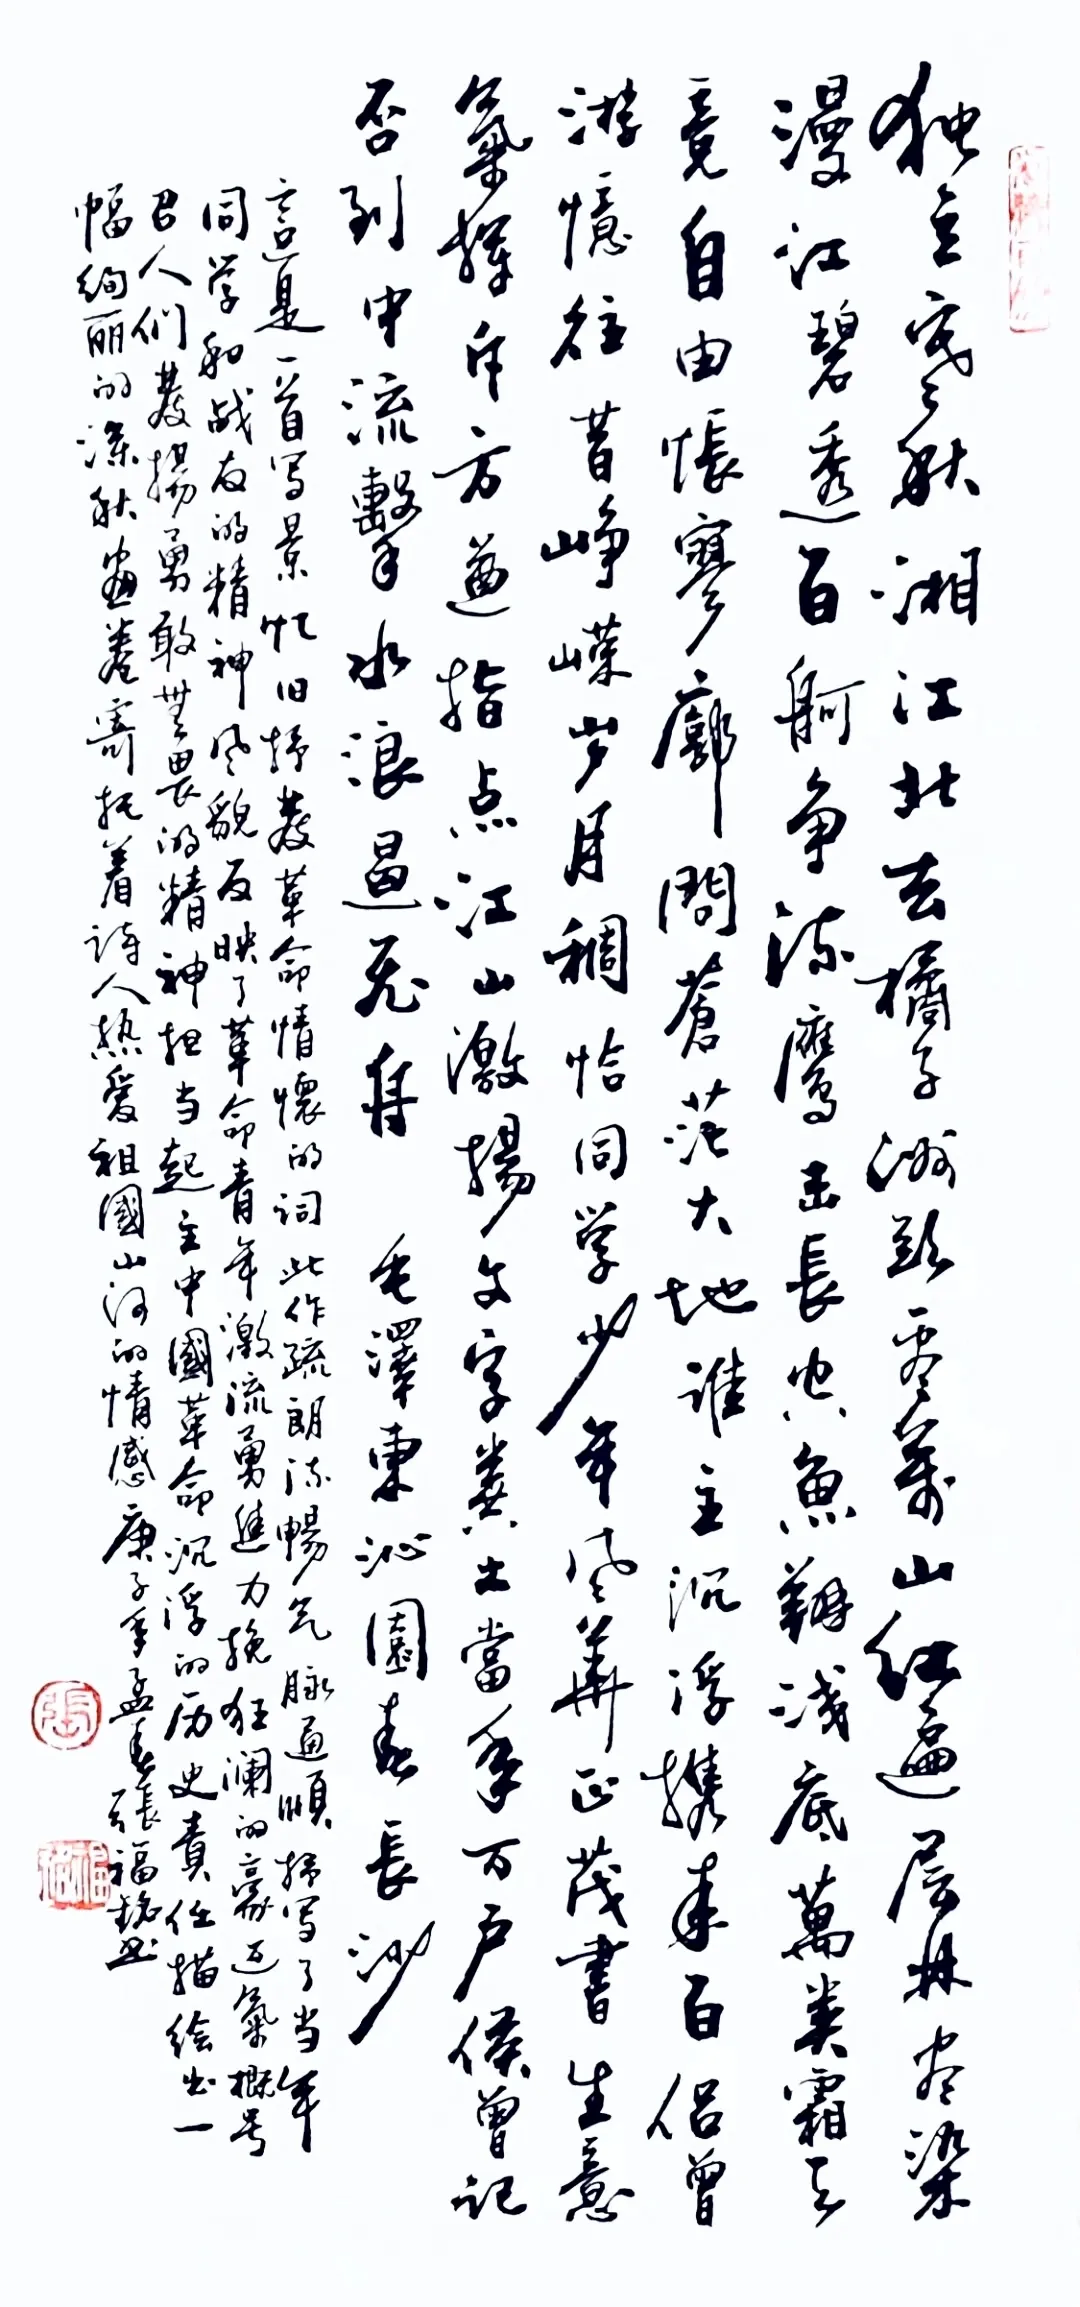 独立寒秋湘江北去橘子洲頭看萬山红遍层林尽染
漫江碧透百舸争流鹰击長空魚翔浅底萬类霜天
竟自由悵寥廓問蒼茫大地谁主沉浮携来百侣曾
游憶往昔峥嵘岁月稠恰同学少年风華正茂書生意
氣揮斥方遒指点江山激揚文字粪土當年万户侯曾记
否到中流擊水浪遏飞舟 毛澤東沁園春長沙
言这是一首写景忆旧抒發革命情懷的词此作疏朗流暢气脉通順描写了当年
同学和战友的精神风貌反映了革命青年激流勇進力挽狂澜的豪迈氣概号
召人们發揚勇敢無畏的精神担当起主中國革命沉浮的历史責任描绘出一
幅绚丽的深秋画卷寄托着诗人热爱祖國山河的情感庚子年孟春張福铭书
張